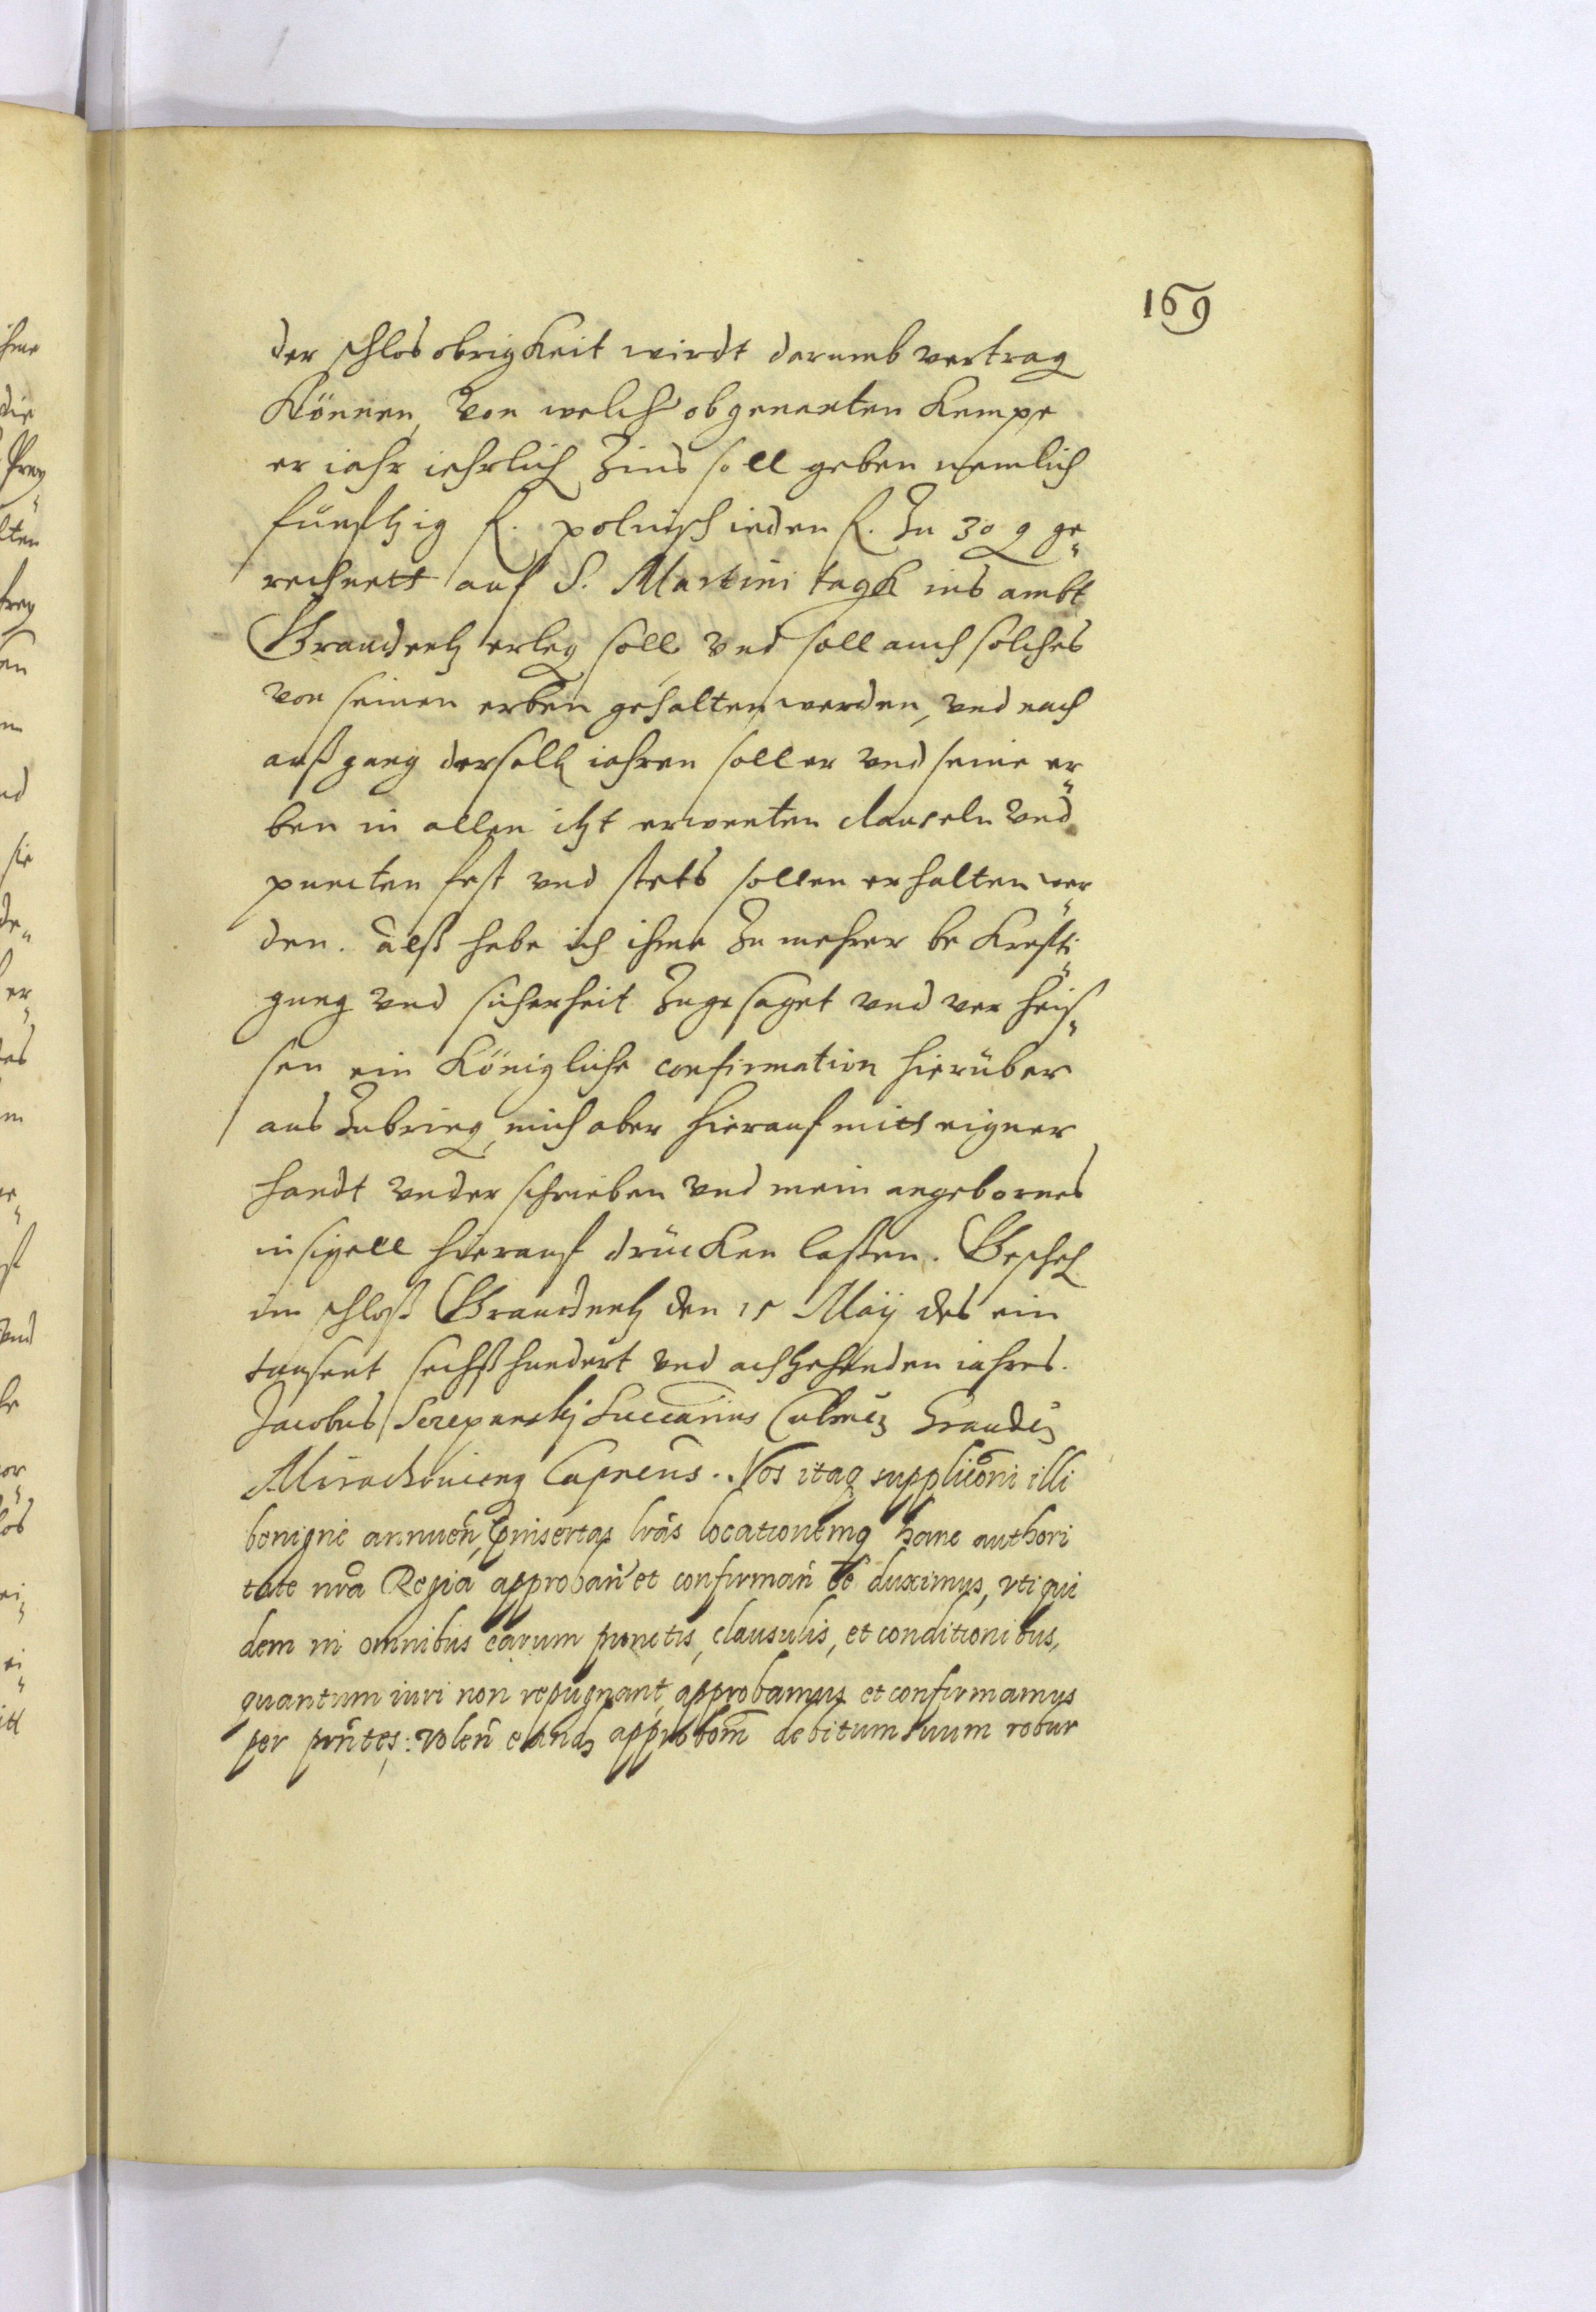 169
der schlos obrigkeit wirdt darumb vertrag
können, von welch obgenanten Kempe
er iahr iehrlich Zins soll geben nemlich
funftzig f. polnisch ieden f. Zu 30 g ge„
rechnett auf S. Martini tagk ins ambt
Graudentz erleg soll vnd soll auch solches
von seinen erben gehalten werden, vnd nach
außgang der iahren soll er vnd seine er„
ben in allen itzt erwenten clauseln vnd
puncten fest vnd stets sollen erhalten wer„
den. alß habe ich ihme Zu mehrer bekrefti„
gung vnd sicherheit Zugesaget vnd verheis„
sen ein Königliche confirmation hierüber
aus Zubring, mich aber hierauf mitt eigner
handt vnderschrieben vnd mein angebornes
insigell hierauf drücken laßen. Gescheh
im schloß Graudentz den 15 Maij des ein
tausent sechßhundert vnd achtzehenden iahres.
Jacobus Sczepanskj Succarius Culmen Grauden
Capneus. Nos itaq supplicōni illi
benigne annuen, insertas lras locationemq hanc authori
tate nra Regia approban et confirman ee duximus, vti qui
dem in omnibus earum punctis, clausulis, et conditionibus,
quantum iuri non repugnant, approbamus et confirmamus
per pntes: volen eandē approbōm debitum suum robur